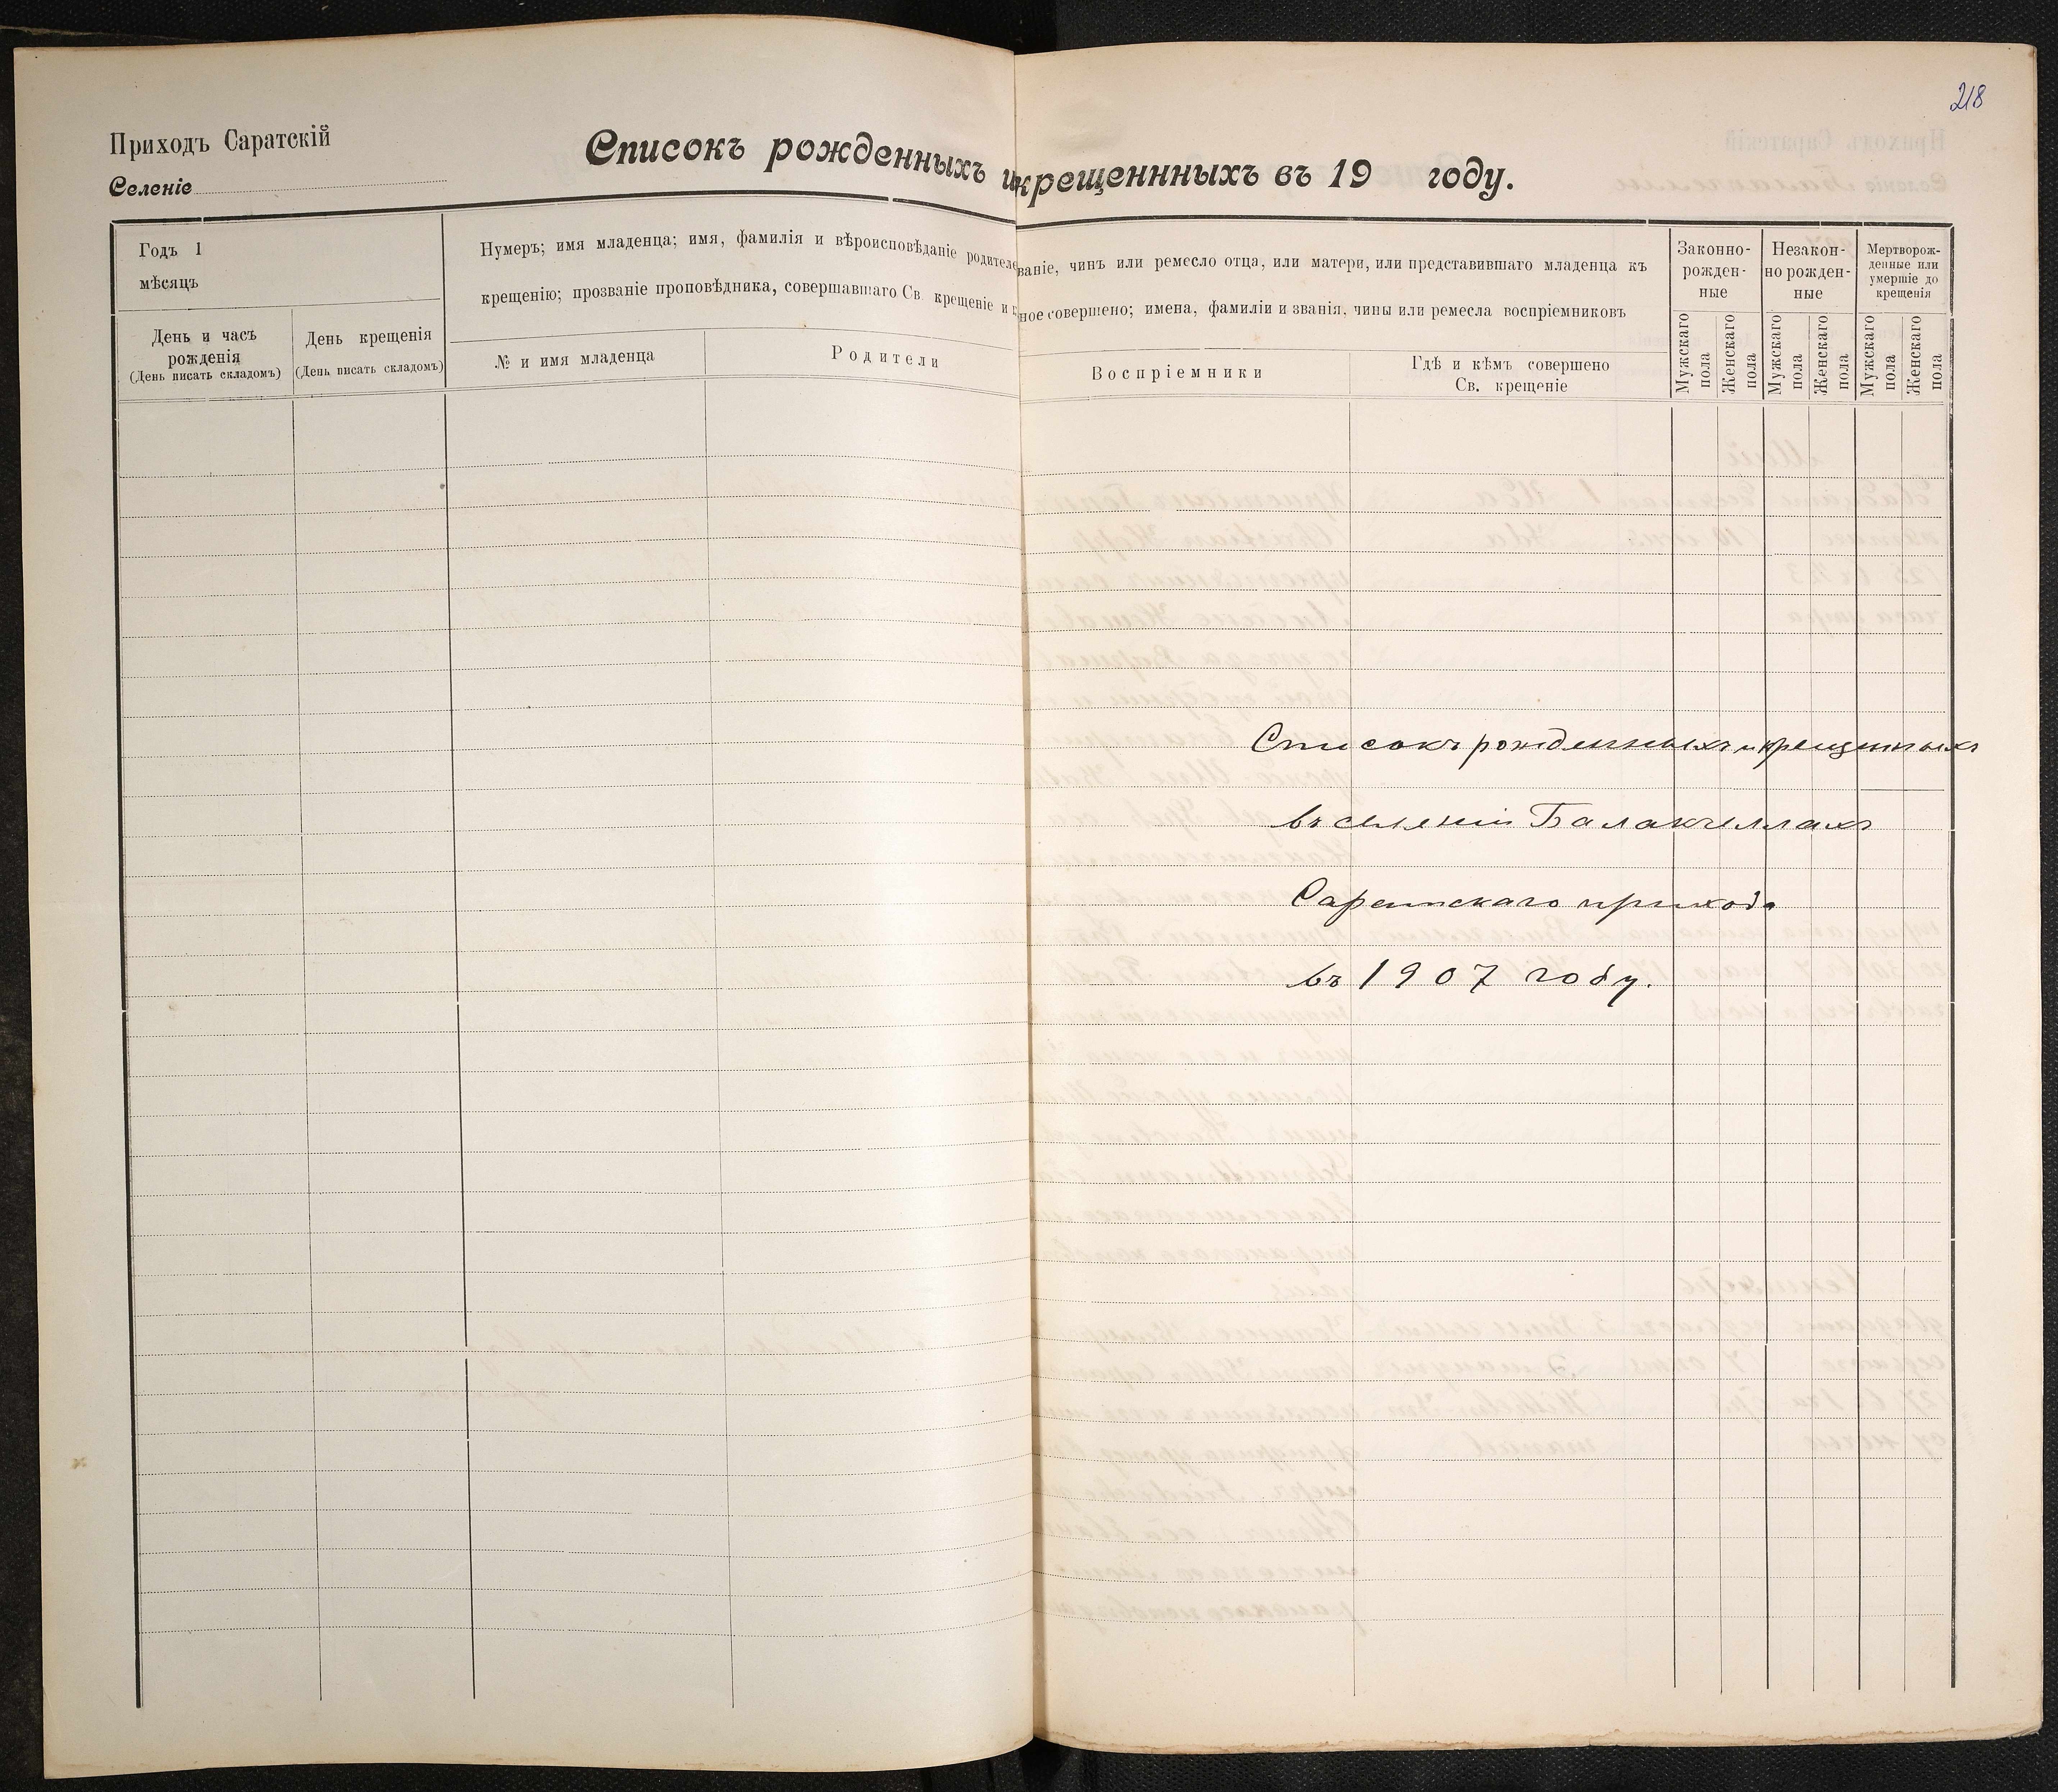 218
Приходъ Саратскій
Селеніе
Списокъ рожденныхъ и крещеннныхъ въ 19 году.
Годъ 1
мѣсяцъ
День и часъ
рожденія
(День писать складомъ)
День крещенія
(День писать складомъ)
Нумеръ; имя младенца; имя, фамилія и вѣроисповѣданіе родителе
крещенію; прозваніе проповѣдника, совершавшаго Св. крещеніе и г
№ и имя младенца
Родители
ваніе, чинъ или ремесло отца, или матери, или представившаго младенца къ
ное совершено; имена, фамиліи и званія, чины или ремесла воспріемниковъ
Воспріемники
Гдѣ и кѣмъ совершено
Св. крещеніе
Законно-
рожден-
ные
Незакон-
но рожден-
ные
Мертворож-
денные или
умершіе до
крещенія
Мужскаго
пола
Женскаго
пола
Мужскаго
пола
Женскаго
пола
Мужскаго
пола
Женскаго
пола
Списокъ рожденныхъ и крещенныхъ
въ селеніи Балакчеллахъ
Саратскаго прихода
въ 1907 году.